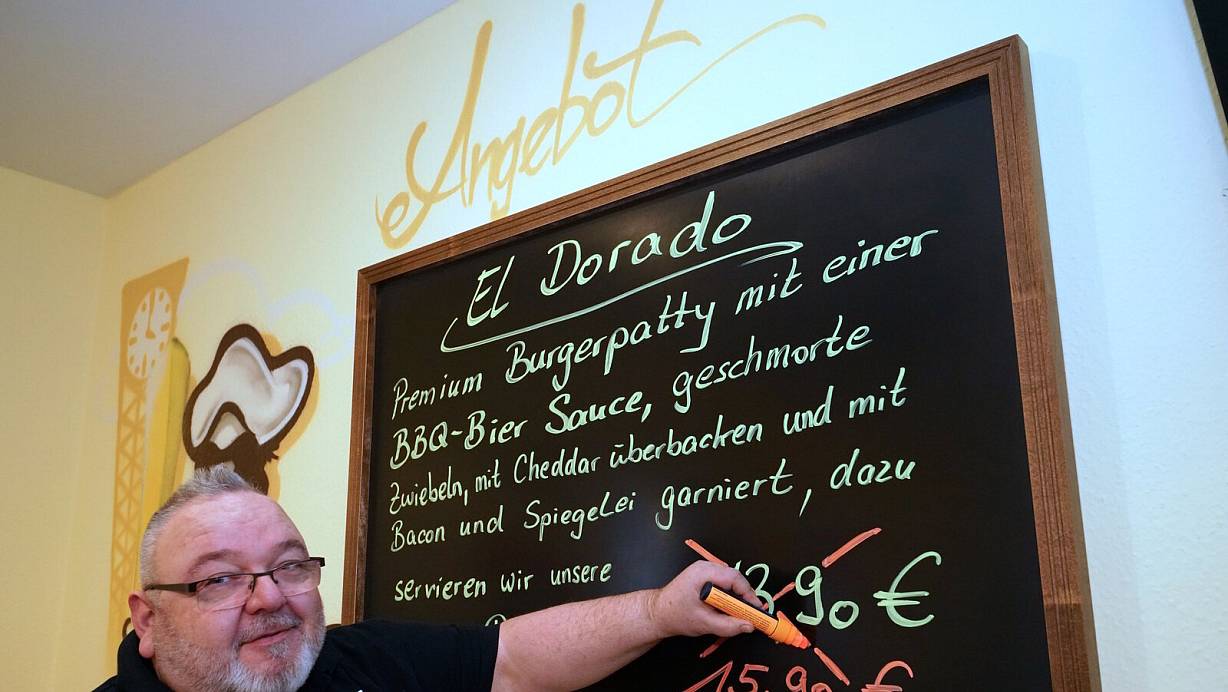 Angebot
El Dorado
Premium Burgerpatty mit einer
BBQ-Bier Sauce, geschmorte
Zwiebeln, mit Cheddar überbacken und mit
Bacon und Spiegelei garniert, dazu
servieren wir unsere
13,90 €
15,90 €